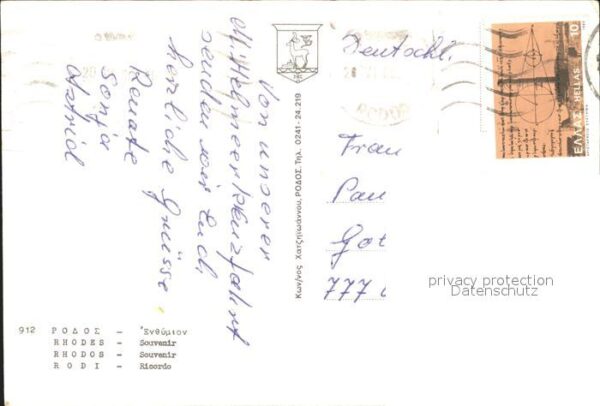 Von unserer
M. Helmeerkreuzfahrt
senden wir Euch
herzliche Grüsse
Renate
Sonja
Astrid
912 ΡΟΔΟΣ - Ἐνθύμιον
RHODES - Souvenir
RHODOS - Souvenir
RODI - Ricordo
Κων/νος Χατζηϊωάννου, ΡΟΔΟΣ, Τηλ. 0241-24.219
Deutschl.
Frau
Pau
Got
777
10
ΕΛΛΑΣ HELLAS
privacy protection
Datenschutz